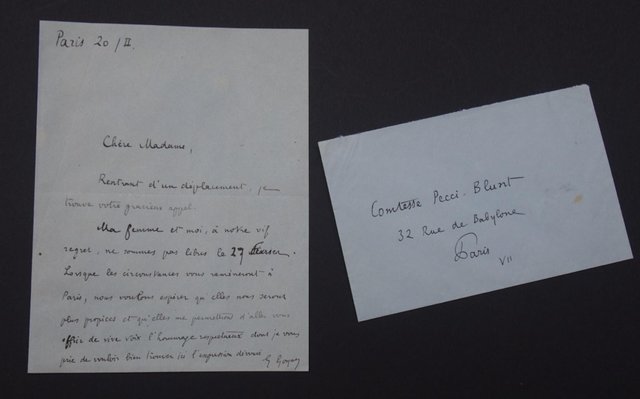 Paris 20/II
Chère Madame,
Rentrant d'un déplacement, je
trouve votre gracieux appel.
Ma femme et moi, à notre vif
regret, ne sommes pas libres le 27
Lorsque les circonstances vous ramèneront à
Paris, nous voulons espérer qu'elles nous seront
plus propices et qu'elles me permettront d'aller vous
offrir de vive voix l'hommage respectueux dont je vous
prie de vouloir bien trouver ici l'expression dévouée
Comtesse Pecci-Blunt
32 Rue de Babylone
Paris
VII